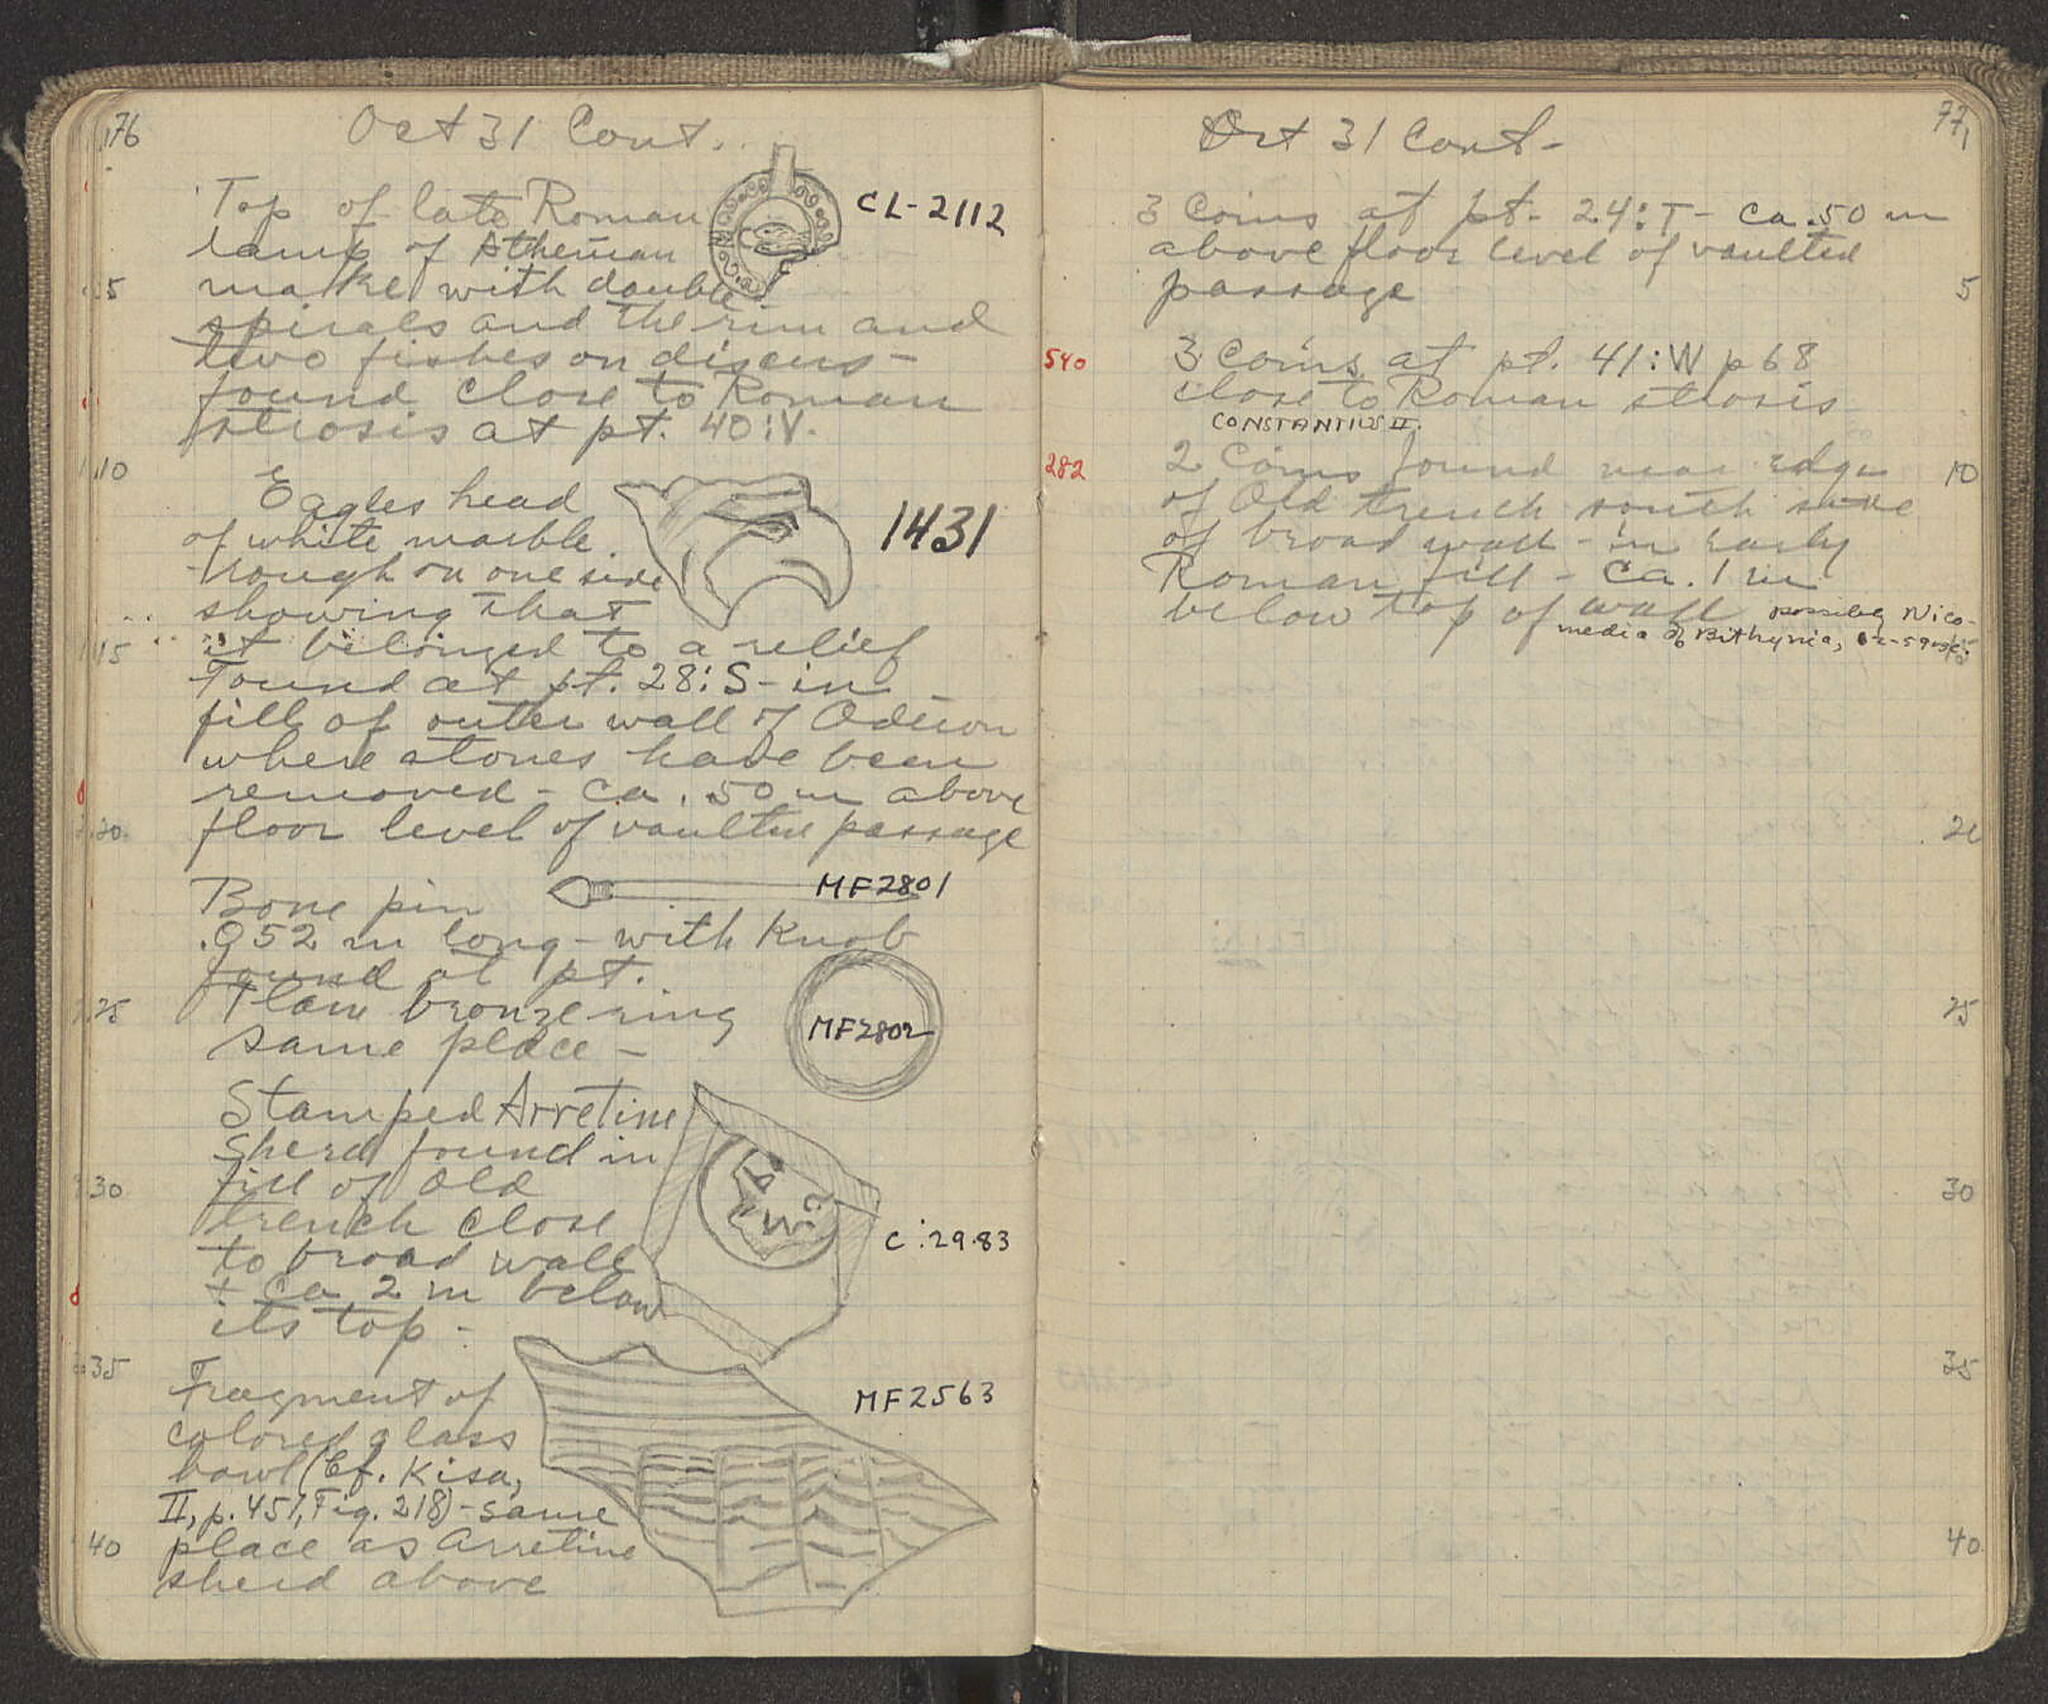 76
Oct 31 Cont.
Top of late Roman
CL-2112
lamp of Athenian
5
make with double
spirals and the rim and
two fishes on discus -
found close to Roman
strosis at pt. 40:V.
10
Eagles head
of white marble.
1431
- rough on one side
showing that
15
it belonged to a relief
Found at pt. 28:S - in
fill of outer wall of Odeion
where stones have been
removed - ca .50 m above
20
floor level of vaulted passage
Bone pin
MF2801
.052 m long - with Knob
found at pt.
25
Plain bronze ring
MF2802
same place -
Stamped Arretine
sherd found in
30
fill of old
trench close
C:29.83
to broad wall
+ ca 2 m below
its top -
35
Fragment of
MF2563
colored glass
bowl (Cf. Kisa,
II, p. 451, Fig. 218) - same
40
place as Arretine
sherd above
77
Oct 31 Cont -
3 Coins at pt. 24:T - ca .50 m
above floor level of vaulted
passage
5
540
3 Coins at pt. 41:W p 68
close to Roman strosis
CONSTANTIUS II.
282
2 Coins found near edge
10
of Old trench south side
of broad wall - in early
Roman fill - ca. 1 m
below top of wall
possibly Nico-
media of Bithynia,
20
25
30
35
40